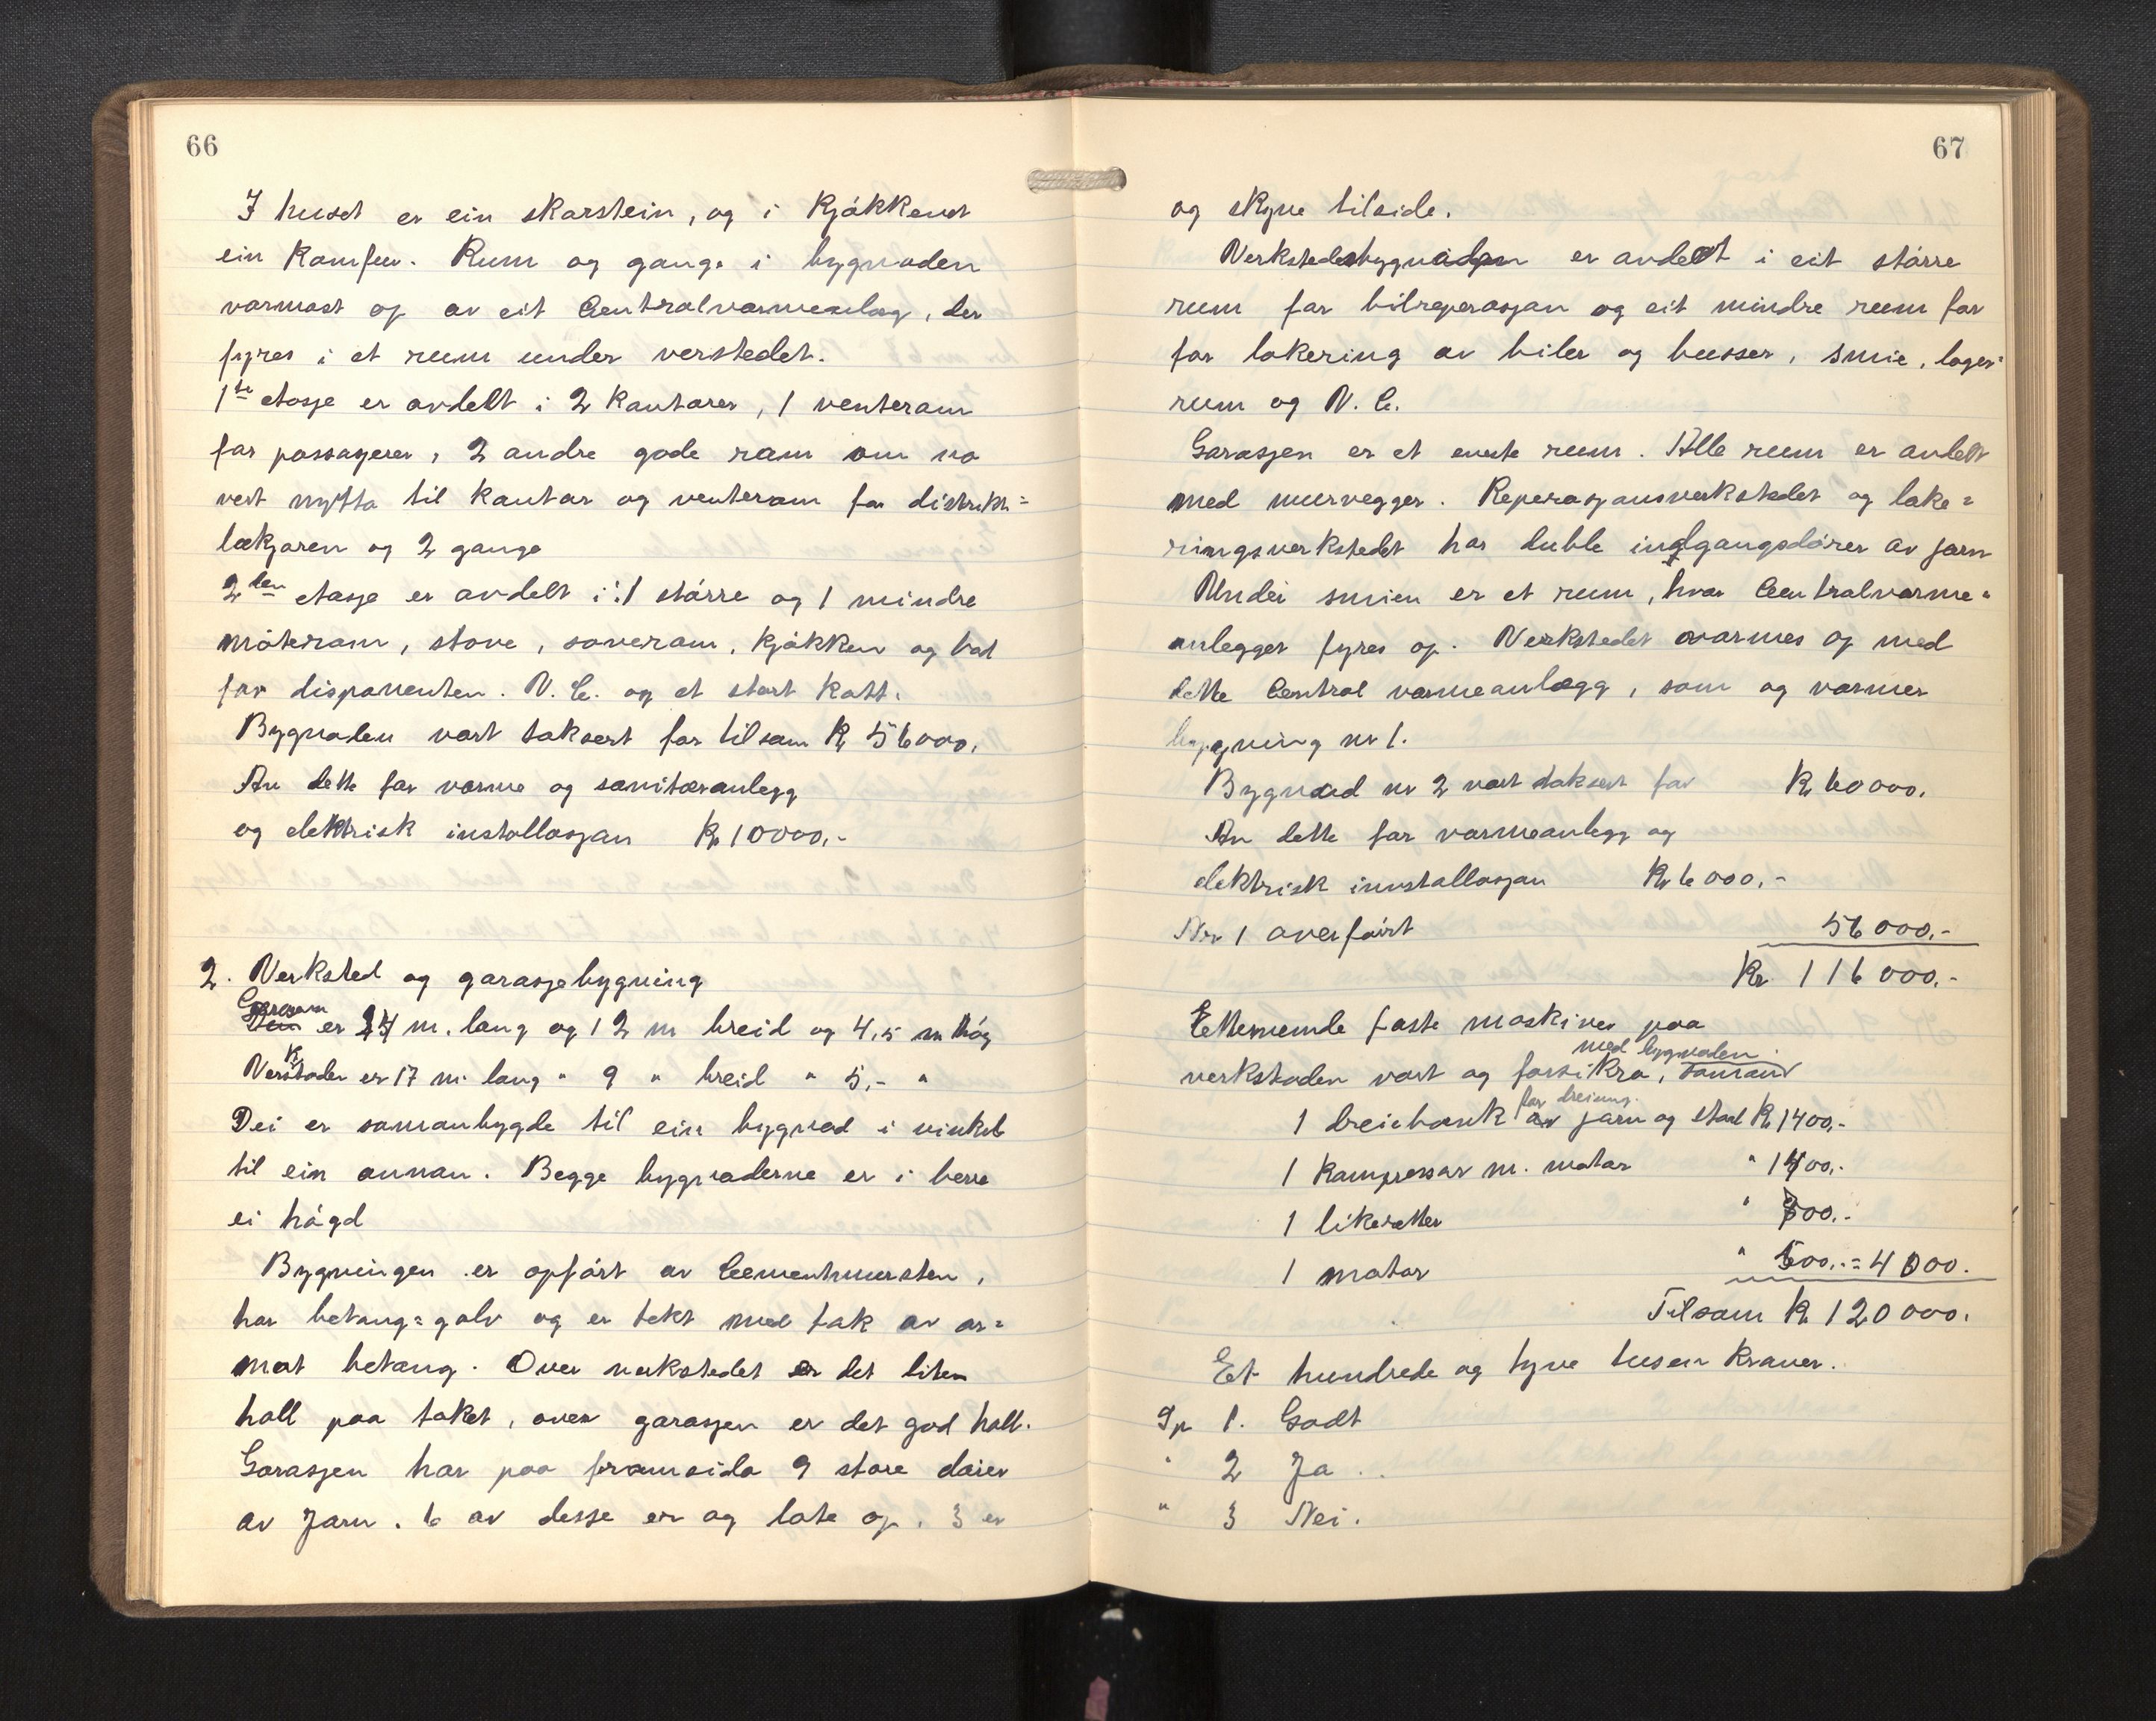 66
I huset er ein skarstein, og i Kjøkkenet
ein Komfur. Rum og gange i bygnaden
varmast op av eit Centralvarmeanlæg, der
fyres i et rum under verstedet.
1ste etasje er avdelt i 2 Kontorer, 1 venterom
for passagerer, 2 andre gode rom om no
vert nytta til Kontor og venterom for distrikts=
lækjaren og 2 gange
2den etasje er avdelt i: 1 større og 1 mindre
møterom, stove, soverom, Kjøkken og bad
for disponenten. V. C. og et stort Kott.
Bygnaden vart taksert for tilsam Kr 56000.
Av dette for varme og sanitæranlegg
og elektrisk installasjon Kr 10000.-
2. Verksted og garasjebygning
Garasjen
er 24 m. lang og 12 m breid og 4,5 m høg
Verkstaden er 17 m. lang " 9 " breid " 5,- "
Dei er samanbygde til ein bygnad i vinkel
til ein annan. Begge bygnaderne er i berre
ei høgd
Bygningen er opført av Cementmursten,
har betong=golv og er tekt med tak av ar=
mert betong. Over verkstedet er det liten
hall paa taket, over garasjen er det god hall.
Garasjen har paa framsida 9 store dører
av Jarn. 6 av desse er og late op. 3 er
67
og skyve tilside.
Verkstedsbygnaden er avdelt i eit større
rum for bilreperasjon og eit mindre rum for
for lakering av biler og busser, smie, lager=
rum og V. C.
Garasjen er et eneste rum. Alle rum er avdelt
med murvegger. Reperasjonsverkstedet og lake=
ringsverkstedet har duble indgangsdører av jarn
Under smien er et rum, hvor Centralvarme=
anlegget fyres op. Verkstedet varmes op med
dette Central varmeanlægg, som og varmer
bygning nr 1.
Bygnad nr 2 vart taksert for Kr 60000.
Av dette for varmeanlegg og
elektrisk innstallasjon Kr 6000.-
Nr 1 overført 56000.-
Kr 116000.-
Ettenemde faste maskiner paa
med bygnaden
verkstaden vart og forsikra,
for dreiing
1 dreiebenk av jarn og staal Kr 1400.-
1 Kompressor m. motor " 1400.-
1 likeretter " 00.-
1 motor " 500.- = 4000.
Tilsam Kr 120000.
Et hundrede og tyve tusen Kroner.
Sp 1. Godt
" 2 Ja.
" 3 Nei.